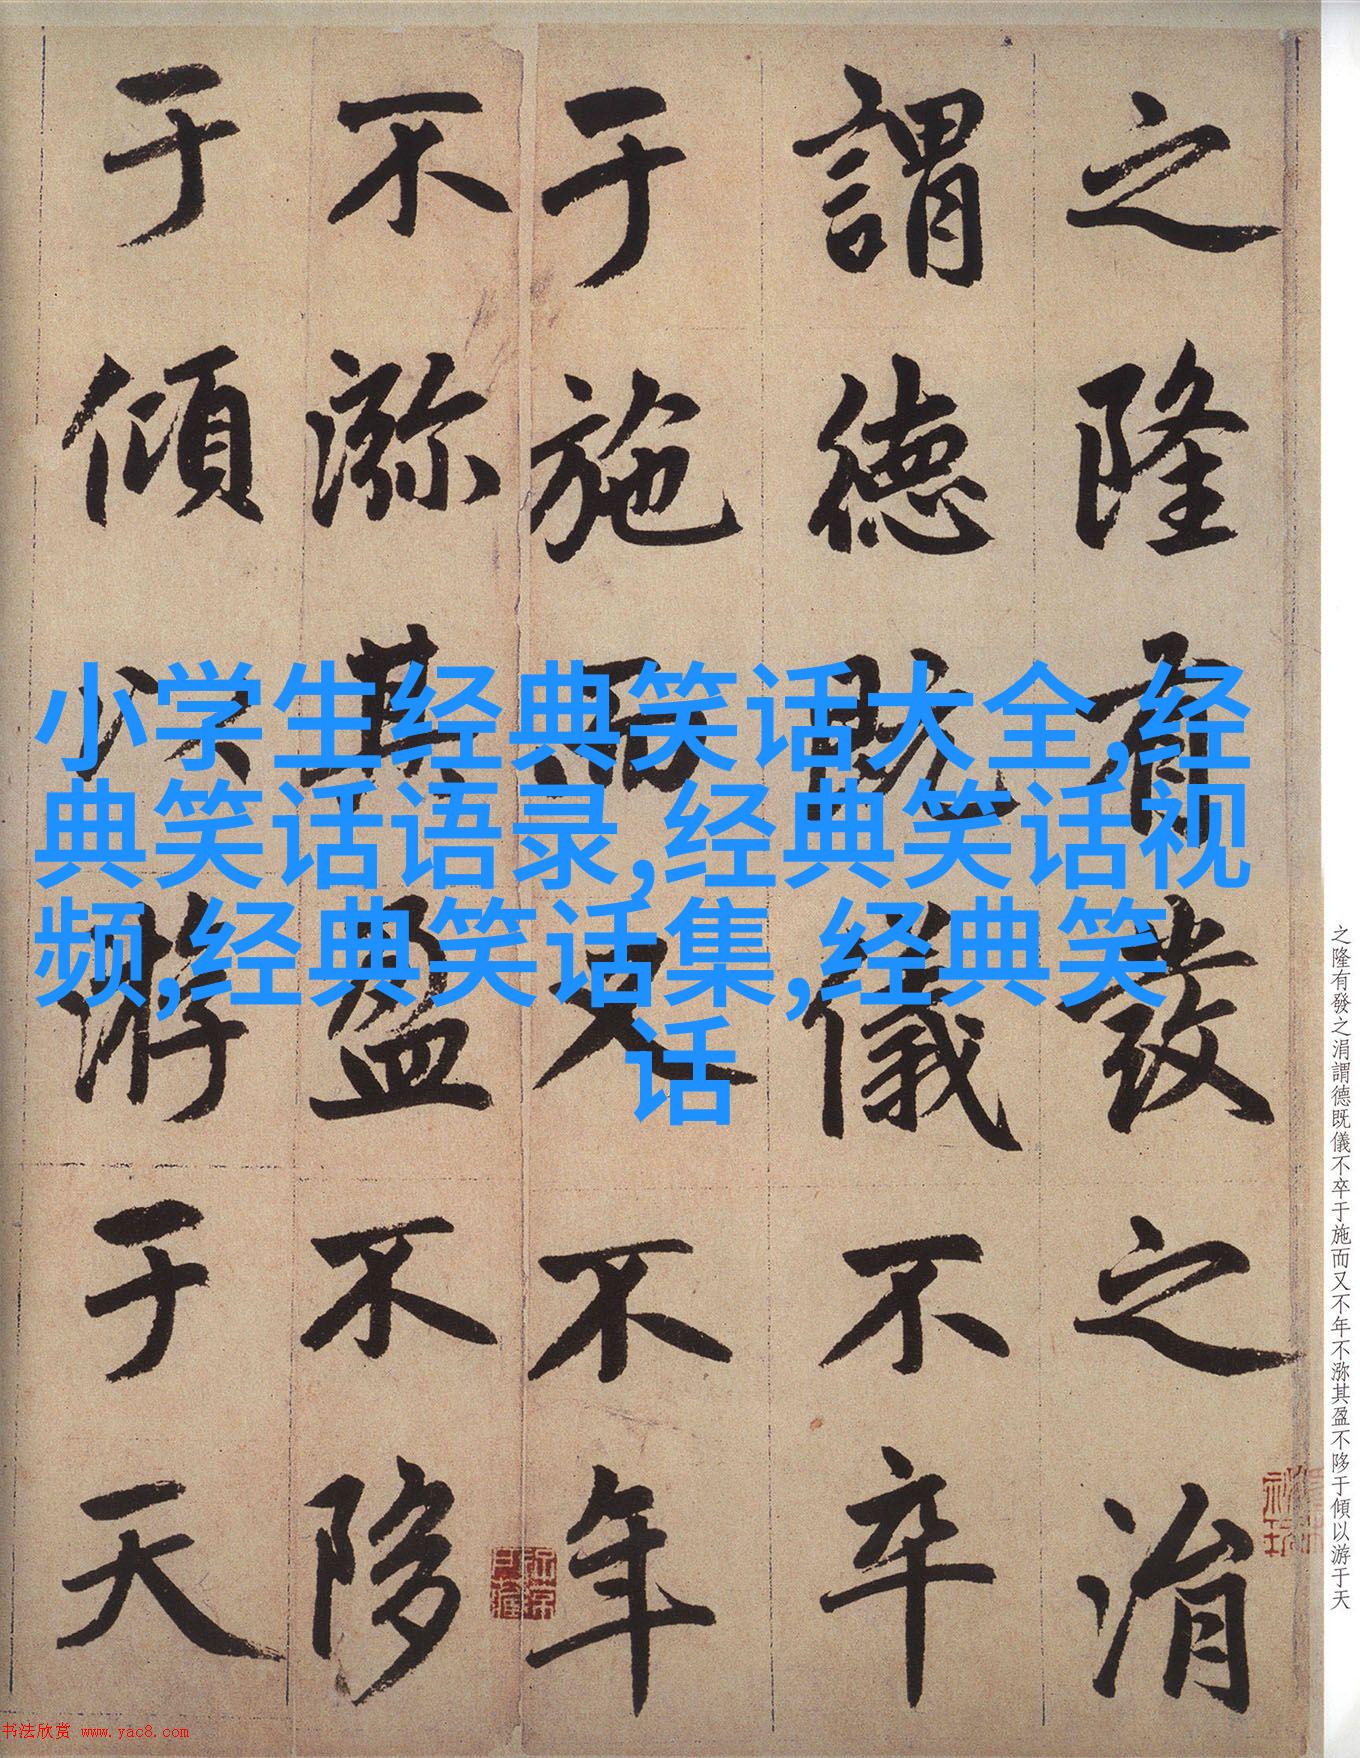 之隆有發之涓
謂德既儀不卒
于施而又不年
不㳽其盈不陊
于傾以游于天
小学生经典笑话大全,经
典笑话语录,经典笑话视
频,经典笑话集,经典笑
话
之隆有發之涓謂德既儀不卒于施而又不年不㳽其盈不陊于傾以游于天
书法欣赏 www.yac8.com